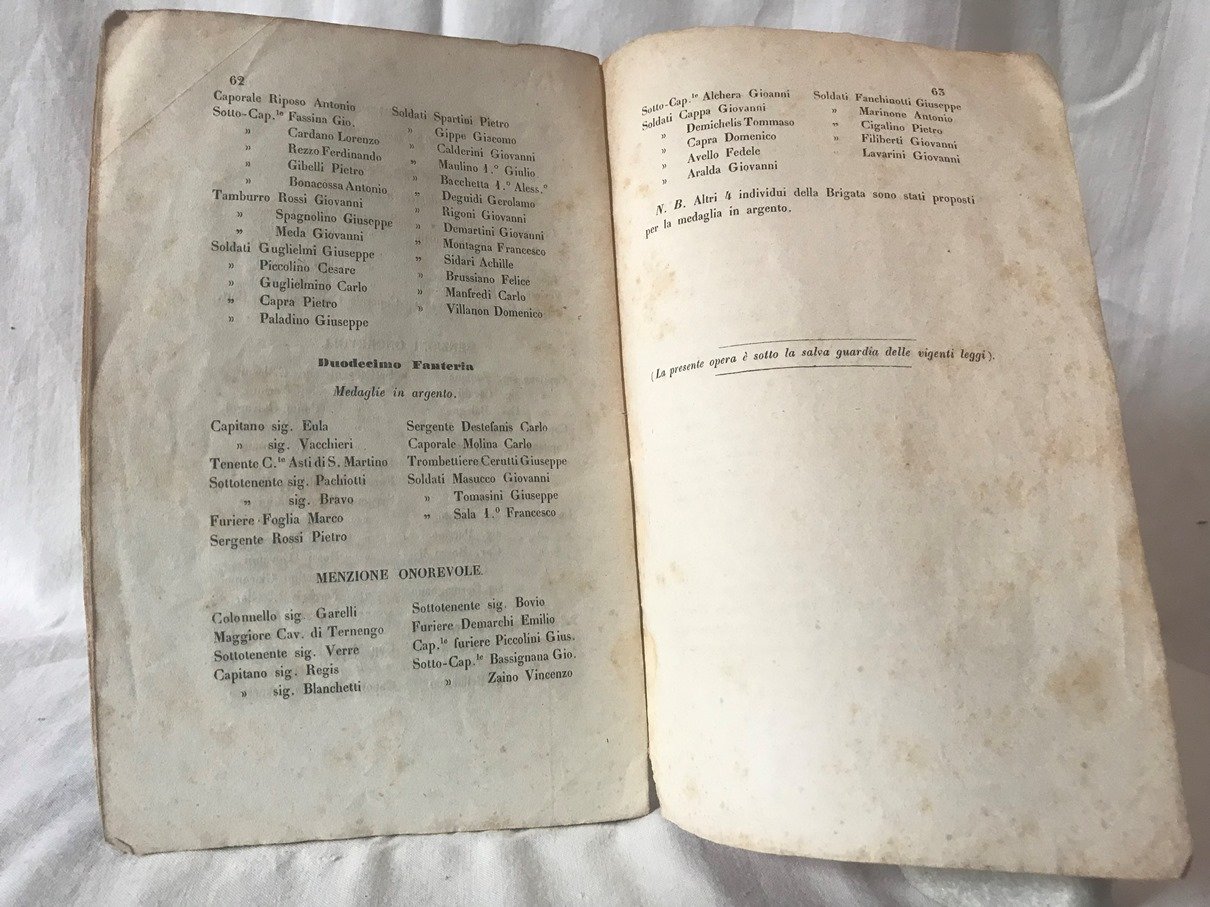 62
Caporale Riposo Antonio
Sotto-Cap.le Fassina Gio.
» Cardano Lorenzo
» Rezzo Ferdinando
» Gibelli Pietro
» Bonacossa Antonio
Tamburro Rossi Giovanni
» Spagnolino Giuseppe
» Meda Giovanni
Soldati Guglielmi Giuseppe
» Piccolino Cesare
» Guglielmino Carlo
» Capra Pietro
» Paladino Giuseppe
Soldati Spartini Pietro
» Gippe Giacomo
» Calderini Giovanni
» Maulino 1.º Giulio
» Bacchetta 1.º Aless.º
» Deguidi Gerolamo
» Rigoni Giovanni
» Demartini Giovanni
» Montagna Francesco
» Sidari Achille
» Brussiano Felice
» Manfredi Carlo
» Villanon Domenico
Duodecimo Fanteria
Medaglie in argento.
Capitano sig. Eula
» sig. Vacchieri
Tenente C.te Asti di S. Martino
Sottotenente sig. Pachiotti
» sig. Bravo
Furiere Foglia Marco
Sergente Rossi Pietro
Sergente Destefanis Carlo
Caporale Molina Carlo
Trombettiere Cerutti Giuseppe
Soldati Masucco Giovanni
» Tomasini Giuseppe
» Sala 1.º Francesco
MENZIONE ONOREVOLE.
Colonnello sig. Garelli
Maggiore Cav. di Ternengo
Sottotenente sig. Verre
Capitano sig. Regis
» sig. Blanchetti
Sottotenente sig. Bovio
Furiere Demarchi Emilio
Cap.le furiere Piccolini Gius.
Sotto-Cap.le Bassignana Gio.
» Zaino Vincenzo
63
Sotto-Cap.le Alchera Gioanni
Soldati Cappa Giovanni
» Demichelis Tommaso
» Capra Domenico
» Avello Fedele
» Aralda Giovanni
Soldati Fanchinotti Giuseppe
» Marinone Antonio
» Cigalino Pietro
» Filiberti Giovanni
» Lavarini Giovanni
N. B. Altri 4 individui della Brigata sono stati proposti
per la medaglia in argento.
(La presente opera è sotto la salva guardia delle vigenti leggi).